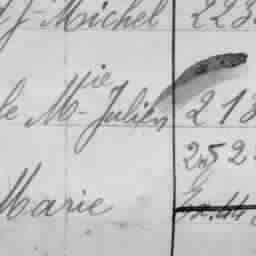 J- Michel 223
le M- Julien 213
ie
252
Marie